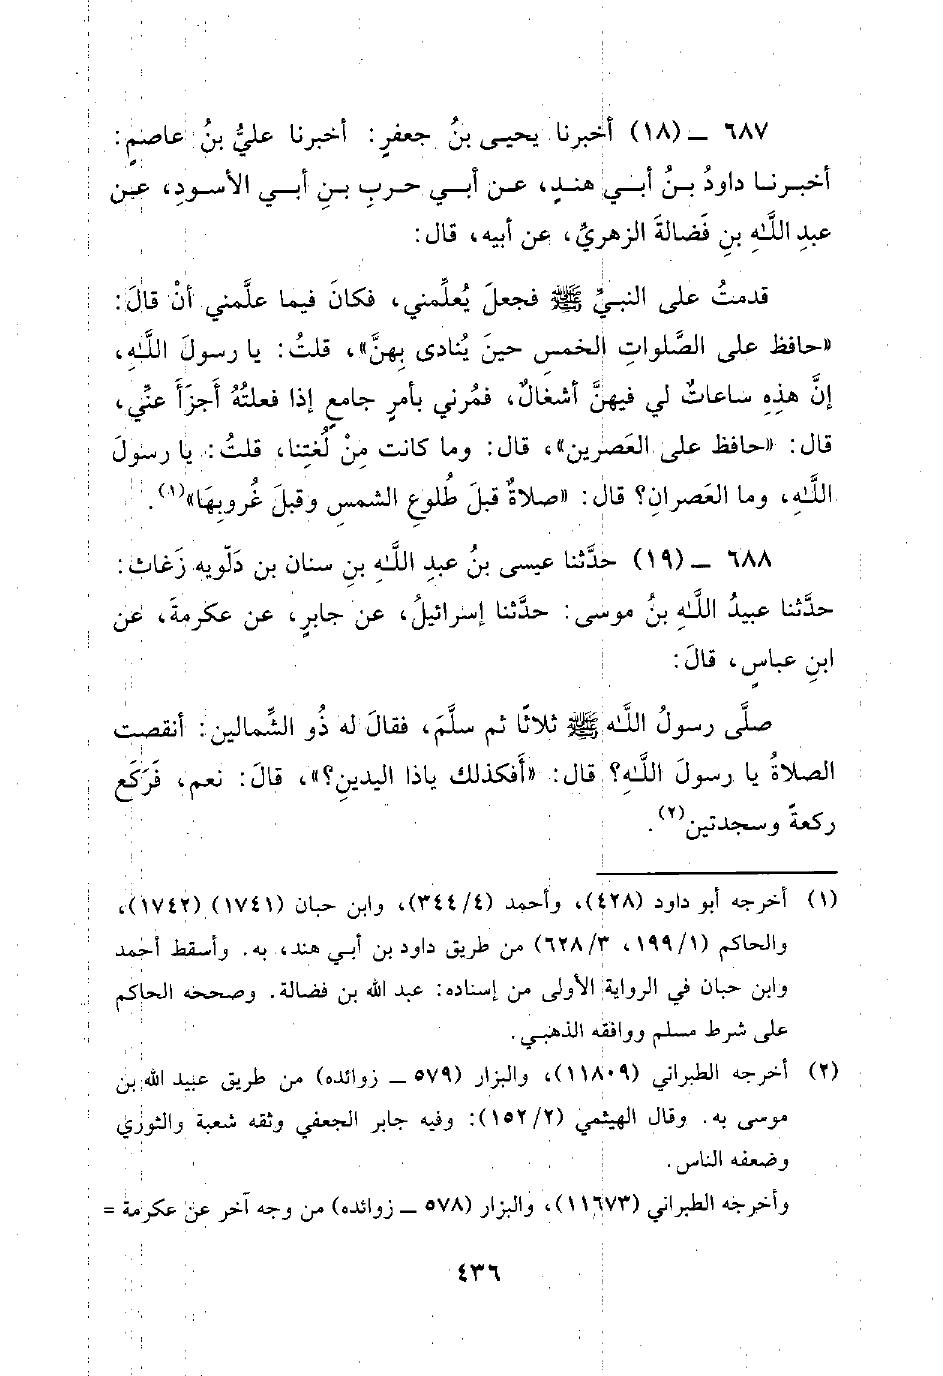 ٦٨٧ ـ (١٨) أخبرنا يحيى بنُ جعفرٍ: أخبرنا عليُّ بنُ عاصمٍ:
أخبرنا داودُ بنُ أبي هندٍ، عن أبي حربِ بنِ أبي الأسودِ، عن
عبدِ اللَّهِ بنِ فَضالةَ الزهريِّ، عن أبيه، قال:
قدمتُ على النبيِّ ﷺ فجعلَ يُعلِّمني، فكانَ فيما علَّمني أنْ قالَ:
«حافظ على الصَّلواتِ الخمسِ حينَ يُنادى بِهنَّ»، قلتُ: يا رسولَ اللَّهِ،
إنَّ هذِهِ ساعاتٌ لي فيهنَّ أشغالٌ، فمُرني بأمرٍ جامعٍ إذا فعلتُهُ أَجزَأَ عنِّي،
قال: «حافظ على العَصرين»، قال: وما كانت مِنْ لُغتِنا، قلتُ: يا رسولَ
اللَّهِ، وما العَصرانِ؟ قال: «صلاةٌ قبلَ طُلوعِ الشمسِ وقبلَ غُروبِهَا»(١).
٦٨٨ ـ (١٩) حدَّثنا عيسى بنُ عبدِ اللَّهِ بنِ سنان بن دَلّويه زَغاث:
حدَّثنا عبيدُ اللَّهِ بنُ موسى: حدَّثنا إسرائيلُ، عن جابرٍ، عن عكرمةَ، عن
ابنِ عباسٍ، قالَ:
صلَّى رسولُ اللَّه ﷺ ثلاثًا ثم سلَّمَ، فقالَ له ذُو الشِّمالين: أنقصت
الصلاةُ يا رسولَ اللَّهِ؟ قال: «أَفكذلك ياذا اليدينِ؟»، قالَ: نعم، فَرَكَع
ركعةً وسجدتين(٢).
(١) أخرجه أبو داود (٤٢٨)، وأحمد (٣٤٤/٤)، وابن حبان (١٧٤١) (١٧٤٢)،
والحاكم (١٩٩/١، ٦٢٨/٣) من طريق داود بن أبي هند، به. وأسقط أحمد
وابن حبان في الرواية الأولى من إسناده: عبد الله بن فضالة. وصححه الحاكم
على شرط مسلم ووافقه الذهبي.
(٢) أخرجه الطبراني (١١٨٠٩)، والبزار (٥٧٩ ـ زوائده) من طريق عبيد الله بن
موسى به. وقال الهيثمي (١٥٢/٢): وفيه جابر الجعفي وثقه شعبة والثوري
وضعفه الناس.
وأخرجه الطبراني (١١٦٧٣)، والبزار (٥٧٨ ـ زوائده) من وجه آخر عن عكرمة =
٤٣٦